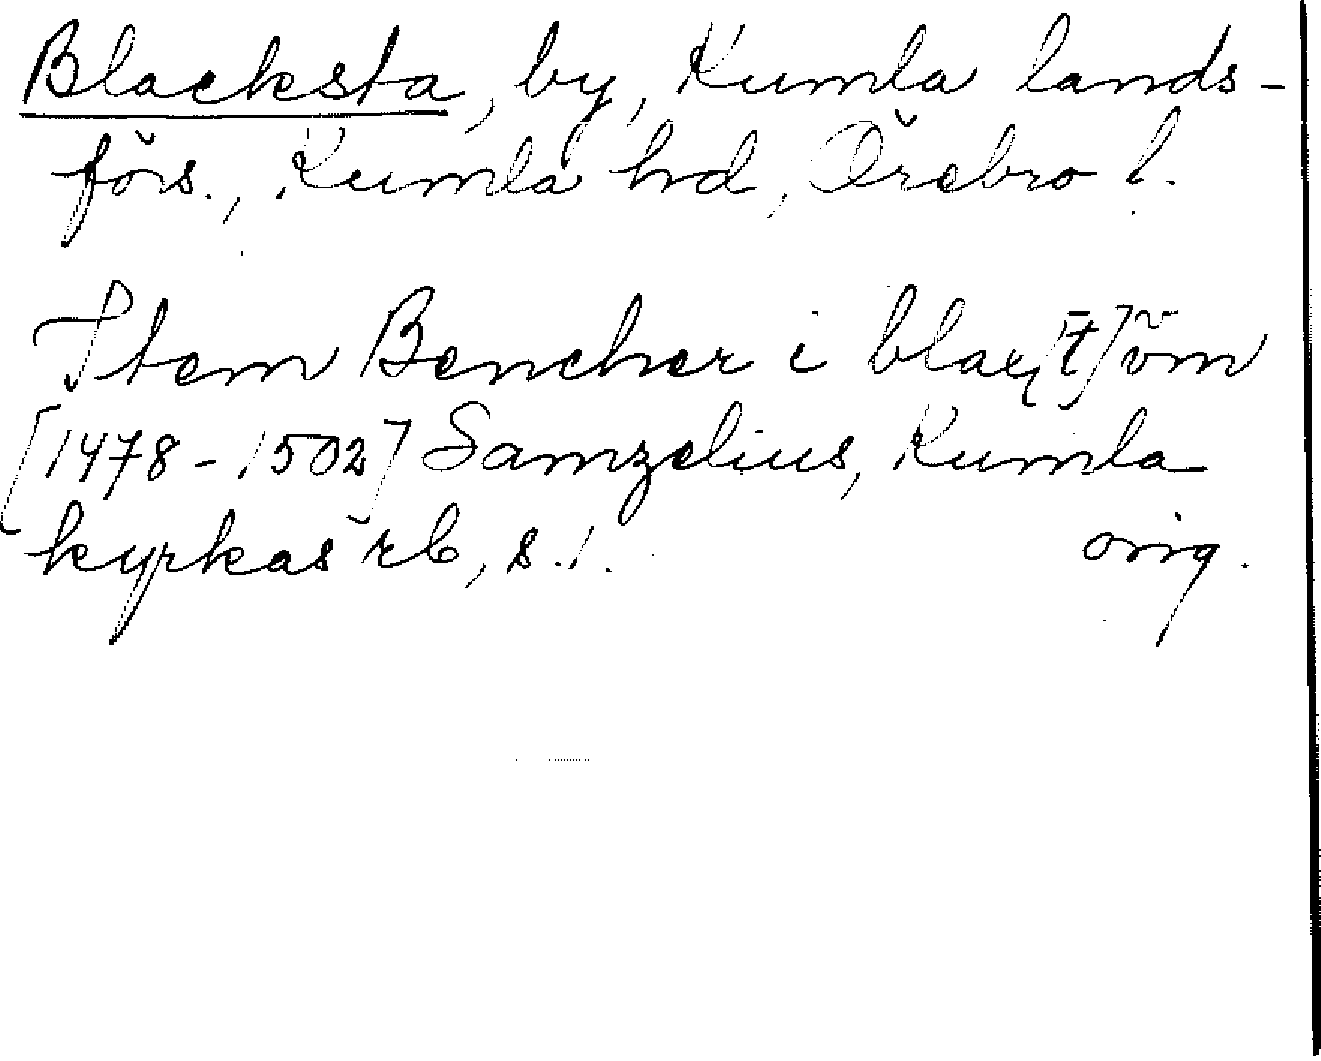 Blacksta, by, Kumla lands-
förs., Kumla hd, Örebro l.
Item Bencher i blax[t] öm
[1478-1502] Samzelius, Kumla
kyrkas rb, s.1. orig.